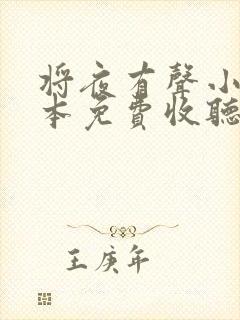 将夜有聲小
本免費收聽
王庚年